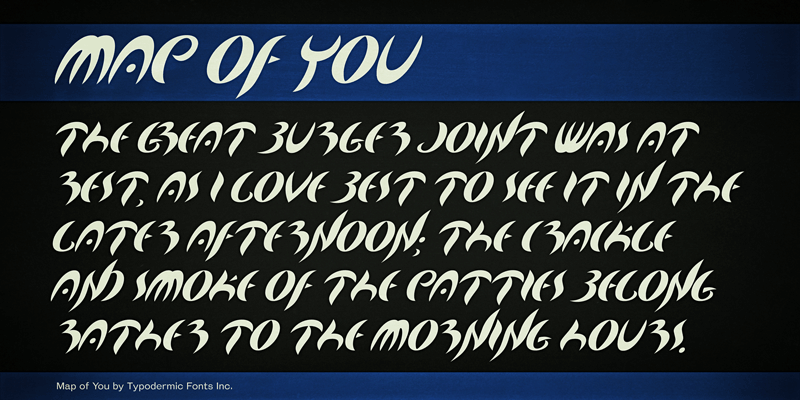 MAP OF YOU
THE GREAT BURGER JOINT WAS AT
REST, AS I LOVE BEST TO SEE IT IN THE
LATER AFTERNOON; THE CRACKLE
AND SMOKE OF THE PATTIES BELONG
RATHER TO THE MORNING HOURS.
Map of You by Typodermic Fonts Inc.